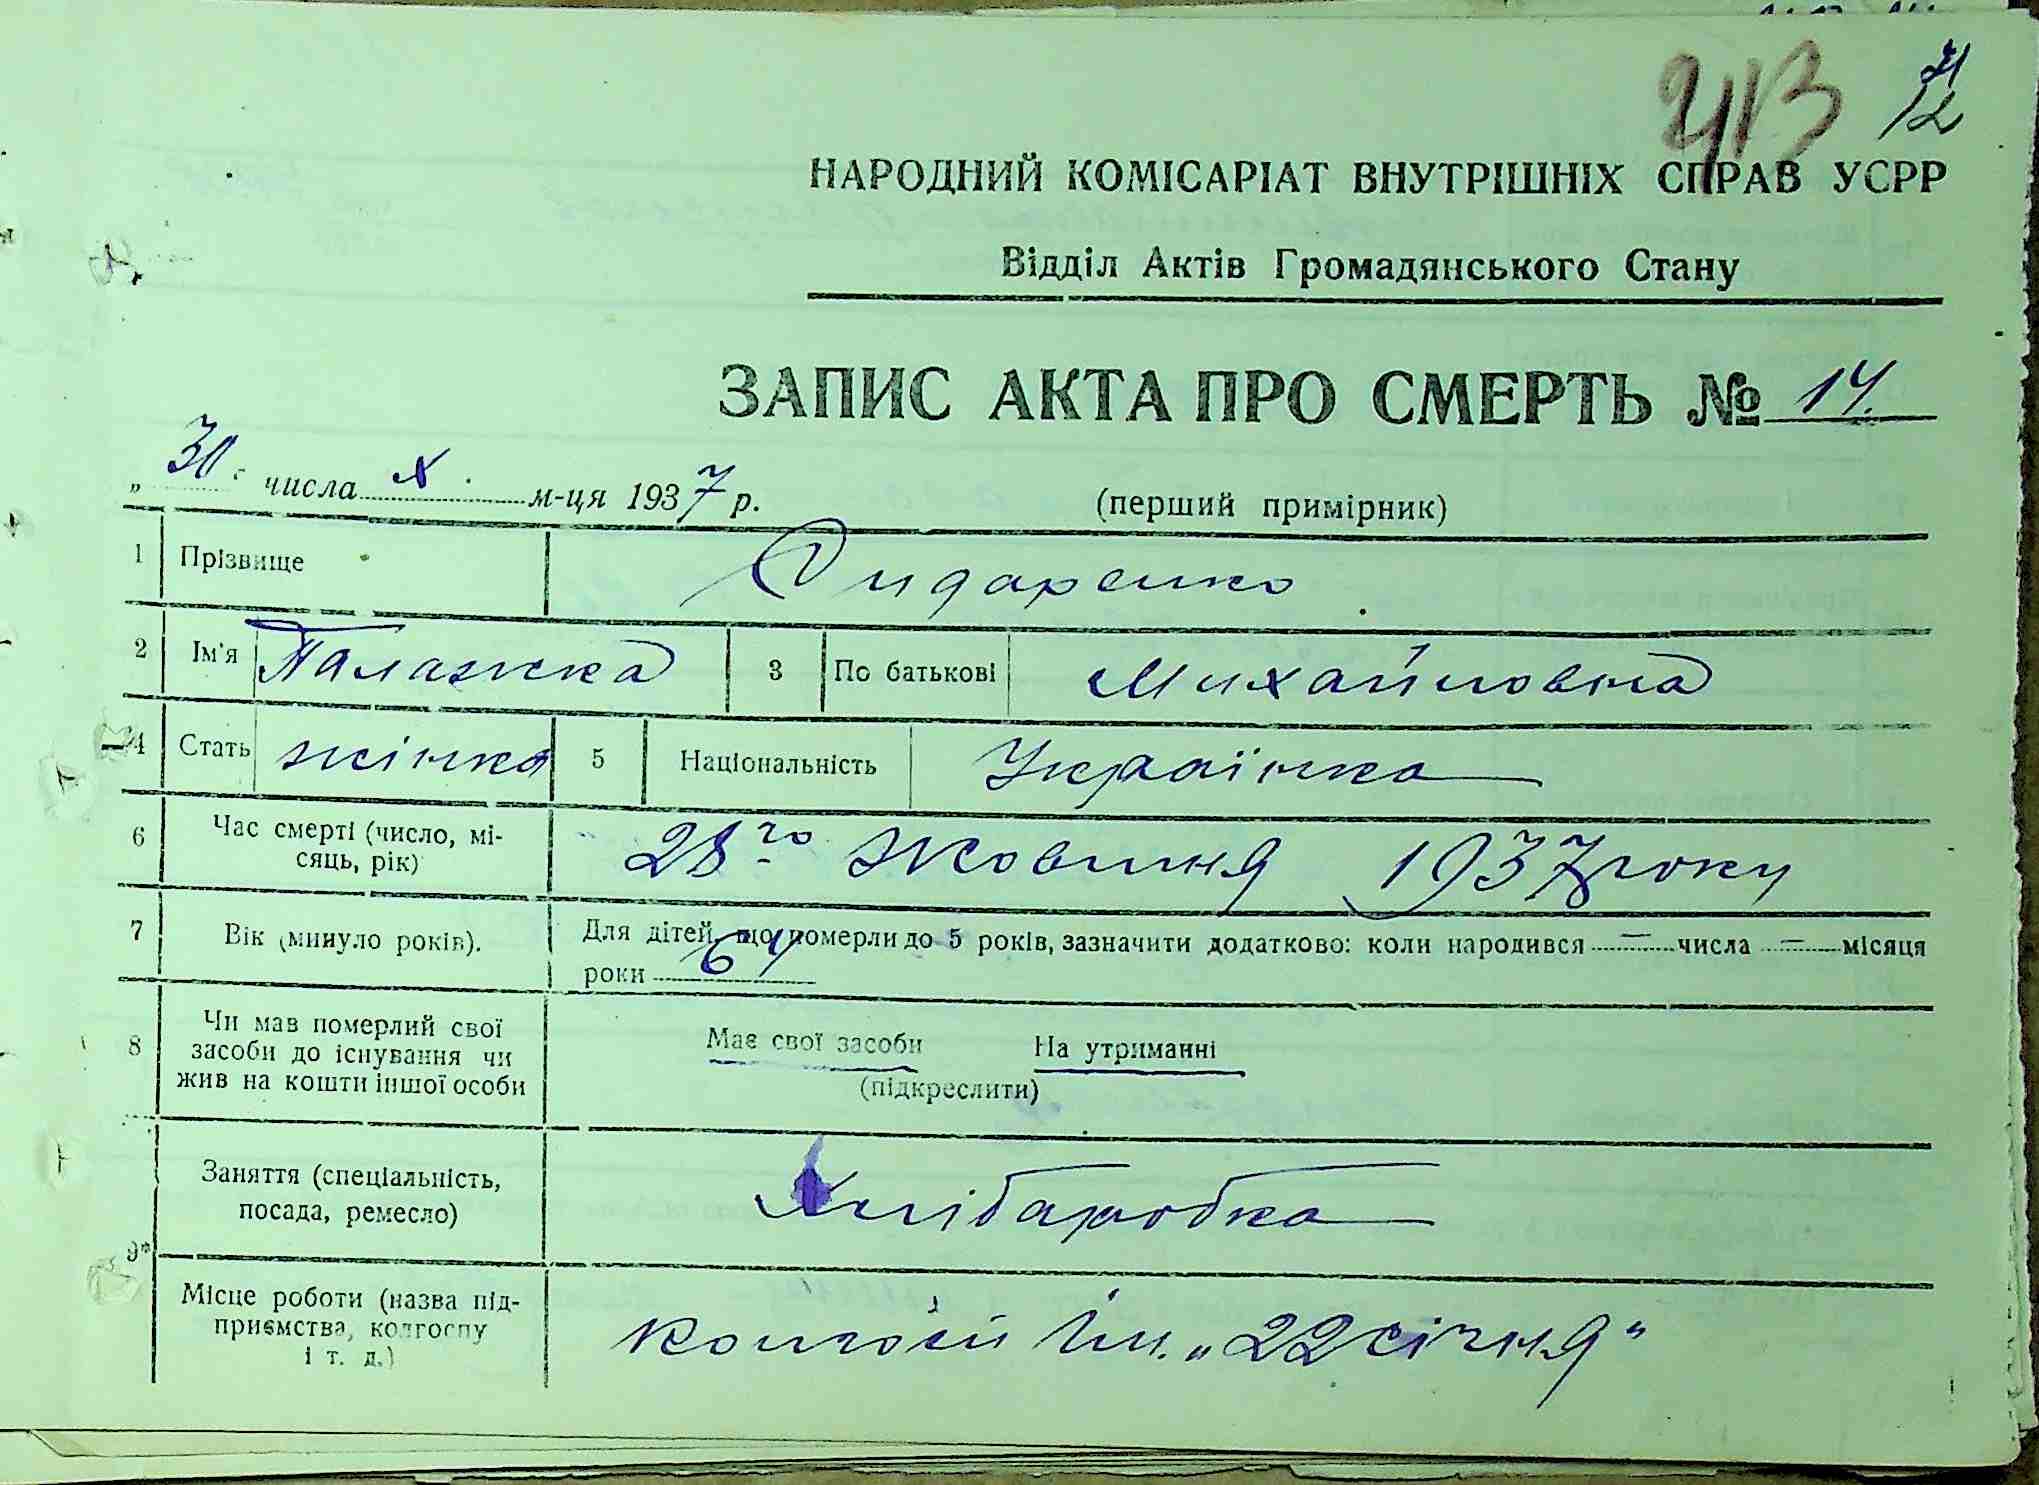 213
12
НАРОДНИЙ КОМІСАРІАТ ВНУТРІШНІХ СПРАВ УСРР
Відділ Актів Громадянського Стану
ЗАПИС АКТА ПРО СМЕРТЬ № 14.
„ 30 " числа X м-ця 1937 р. (перший примірник)
1 Прізвище Дидаренко
2 Ім'я Палажка 3 По батькові Михайловна
4 Стать жінка 5 Національність Українка
6 Час смерті (число, мі-
сяць, рік) 28го жовтня 1937 року
7 Вік (минуло років). Для дітей, що померли до 5 років, зазначити додатково: коли народився — числа — місяця
роки 64
8 Чи мав померлий свої
засоби до існування чи
жив на кошти іншої особи
Має свої засоби На утриманні
(підкреслити)
9* Заняття (спеціальність,
посада, ремесло) Хлібаробка
Місце роботи (назва під-
приємства, колгоспу
і т. д.) колгосп Ім. „22 січня"